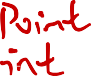 Point
int